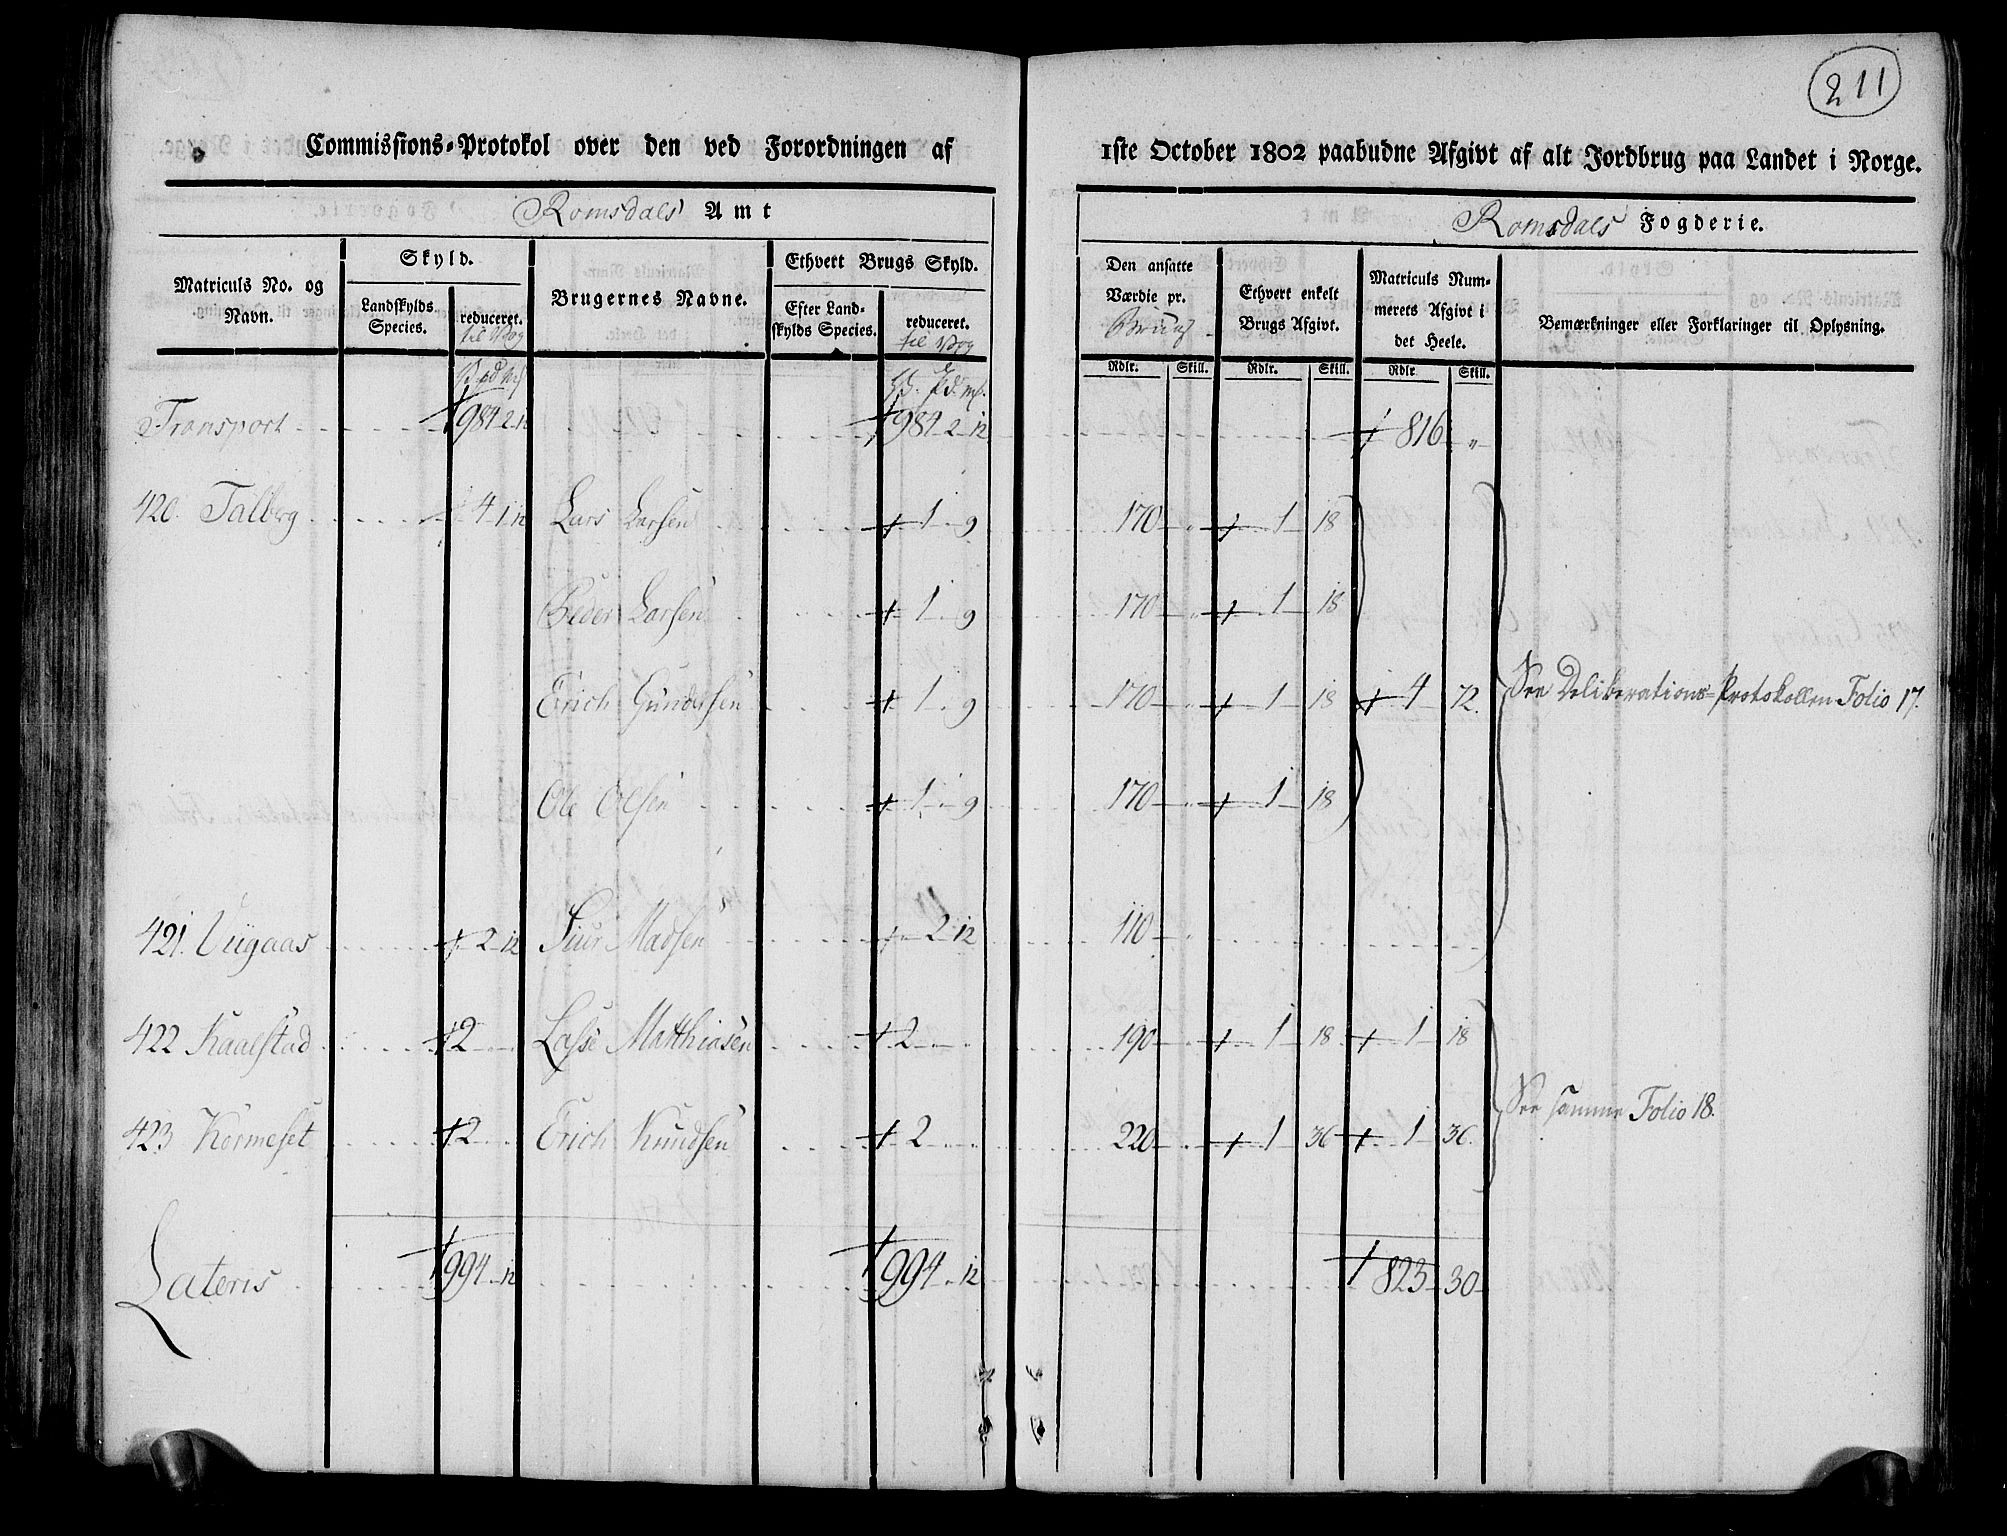 211
Commissions-Protokol over den ved Forordningen af 1ste October 1802 paabudne Afgivt af alt Jordbrug paa Landet i Norge.
Romsdals Amt
Romsdals Fogderie.
Matriculs No. og Navn.
Skyld.
Landskylds Species.
reduceret. til Vog
Brugernes Navne.
Ethvert Brugs Skyld.
Efter Landskylds Species.
reduceret. til Vog
Den ansatte Værdie pr. Brug
Ethvert enkelt Brugs Afgivt.
Matriculs Nummerets Afgivt i det Heele.
Bemærkninger eller Forklaringer til Oplysning.
Rdlr. Skill. Rdlr. Skill. Rdlr Skill.
Transport 984 2 12 984 2 12 816 "
420. Talberg 4 1 12 Lars Larsen 1 9 170 " 1 18
Peder Larsen 1 9 170 " 1 18
Erich Gundersen 1 9 170 " 1 18 4 72. See Deliberations-Protokollen Folio 17.
Ole Olsen 1 9 170 " 1 18
421. Viigaas 2 12 Siur Madsen 2 12 110 "
422 Kaalstad 2 Lasse Matthiasen 2 190 1 18 1 18
See samme Folio 18.
423 Kormeset 2 Erich Knudsen 2 220 1 36 1 36.
Lateris 994 12 994 12 823 30